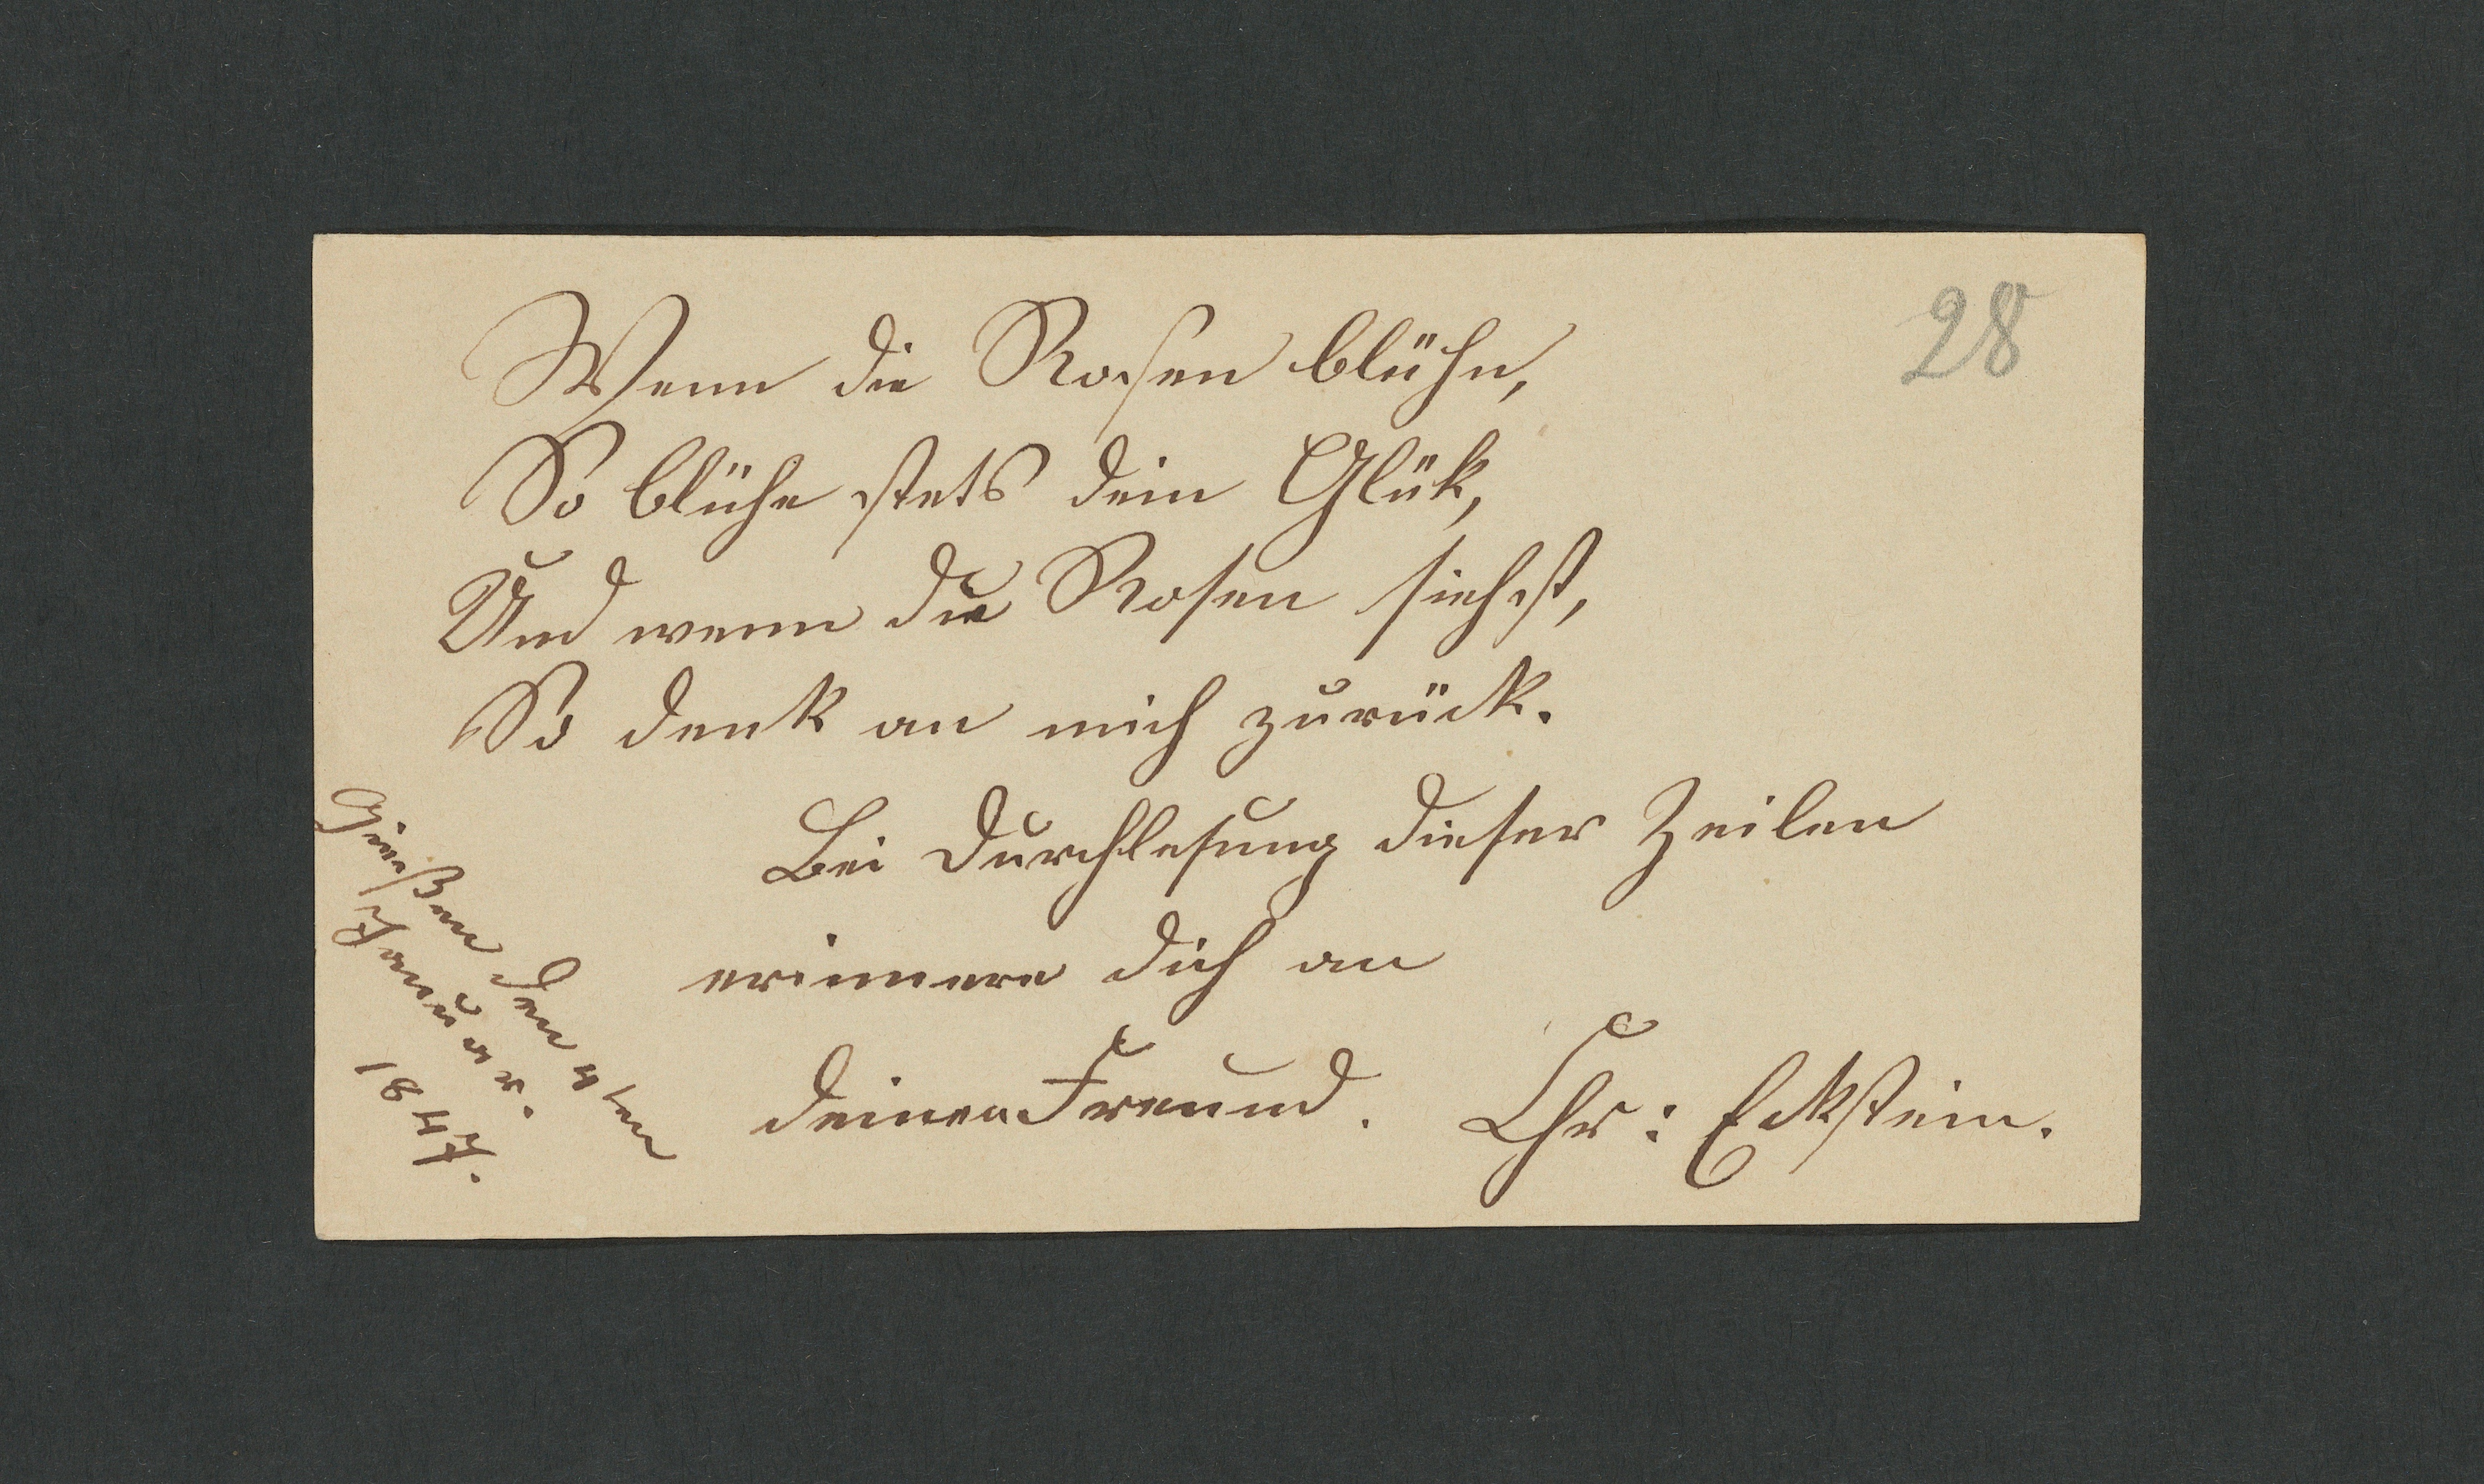 28
Wenn die Rosen blühn,
So blühe stets dein Glük,
Und wenn die Rosen siehst,
So denk an mich zurück.
Bei Durchlesung dieser Zeilen
erinnere dich an
deinen Freund. Chr: Eckstein.
Gießen den 4ten
Januar.
1847.